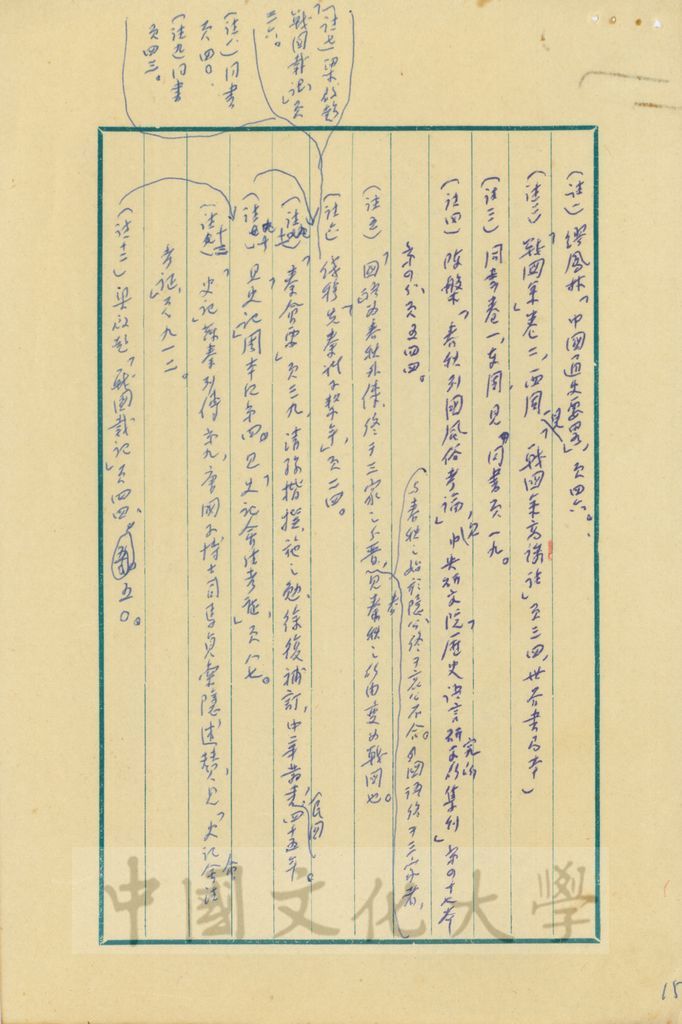 (註一) 繆鳳林「中國通史要略」,頁四六。
(註二)「戰國策卷二,西周」,見「戰國策高誘注」頁三四,世界書局本
(註三) 同書卷一,東周,見同書頁一九。
(註四) 陳槃「春秋列國風俗考論」,見「中央研究院歷史語言研究所集刊」第四十七本
第四分,頁五四四。
與春秋之始於隱公終于哀公不合。國語終于三家者,
(註五) 國語為春秋外傳,終于三家之分晉,見春秋之所由變為戰國也。
(註六) 錢穆「先秦諸子繫年」,頁二四。
(註七) 梁啟超
「戰國載記」頁
三六。
(註八) 同書
頁四〇。
(註九) 同書
頁四三。
「秦會要」頁三九,清孫楷撰,施之勉、徐復補訂,中華叢書,民國四十五年。
(註十) 見史記「周本紀第四」。見「史記會注考証」頁八七。
(註十二)「史記」蘇秦列傳第九,唐國子博士司馬貞索隱述贊,見「史記會注
考証」,頁九一二。
(註十三) 梁啟超「戰國載記」頁四四、五〇。
中國文化大學
15